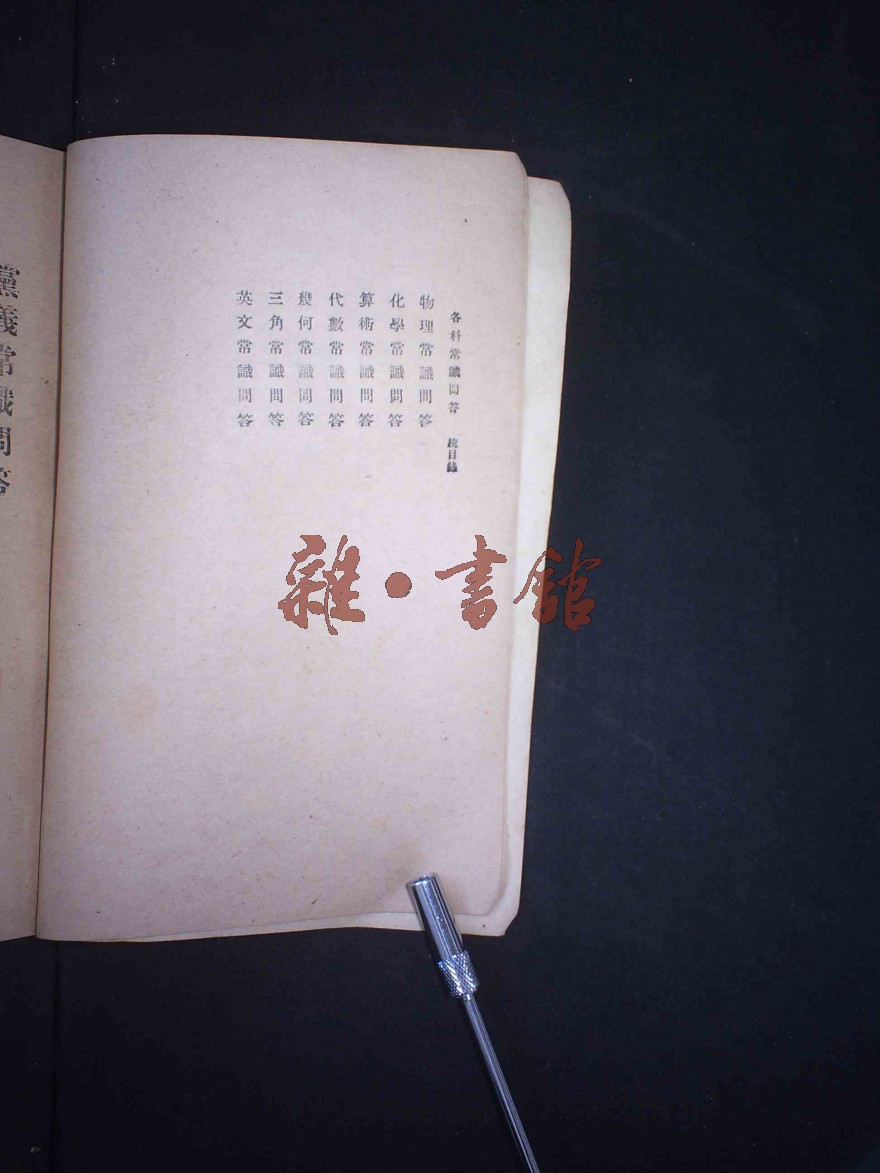 各科常識問答 總目錄
物理常識問答
化學常識問答
算術常識問答
代數常識問答
幾何常識問答
三角常識問答
英文常識問答
黨義常識問答
雜·書館